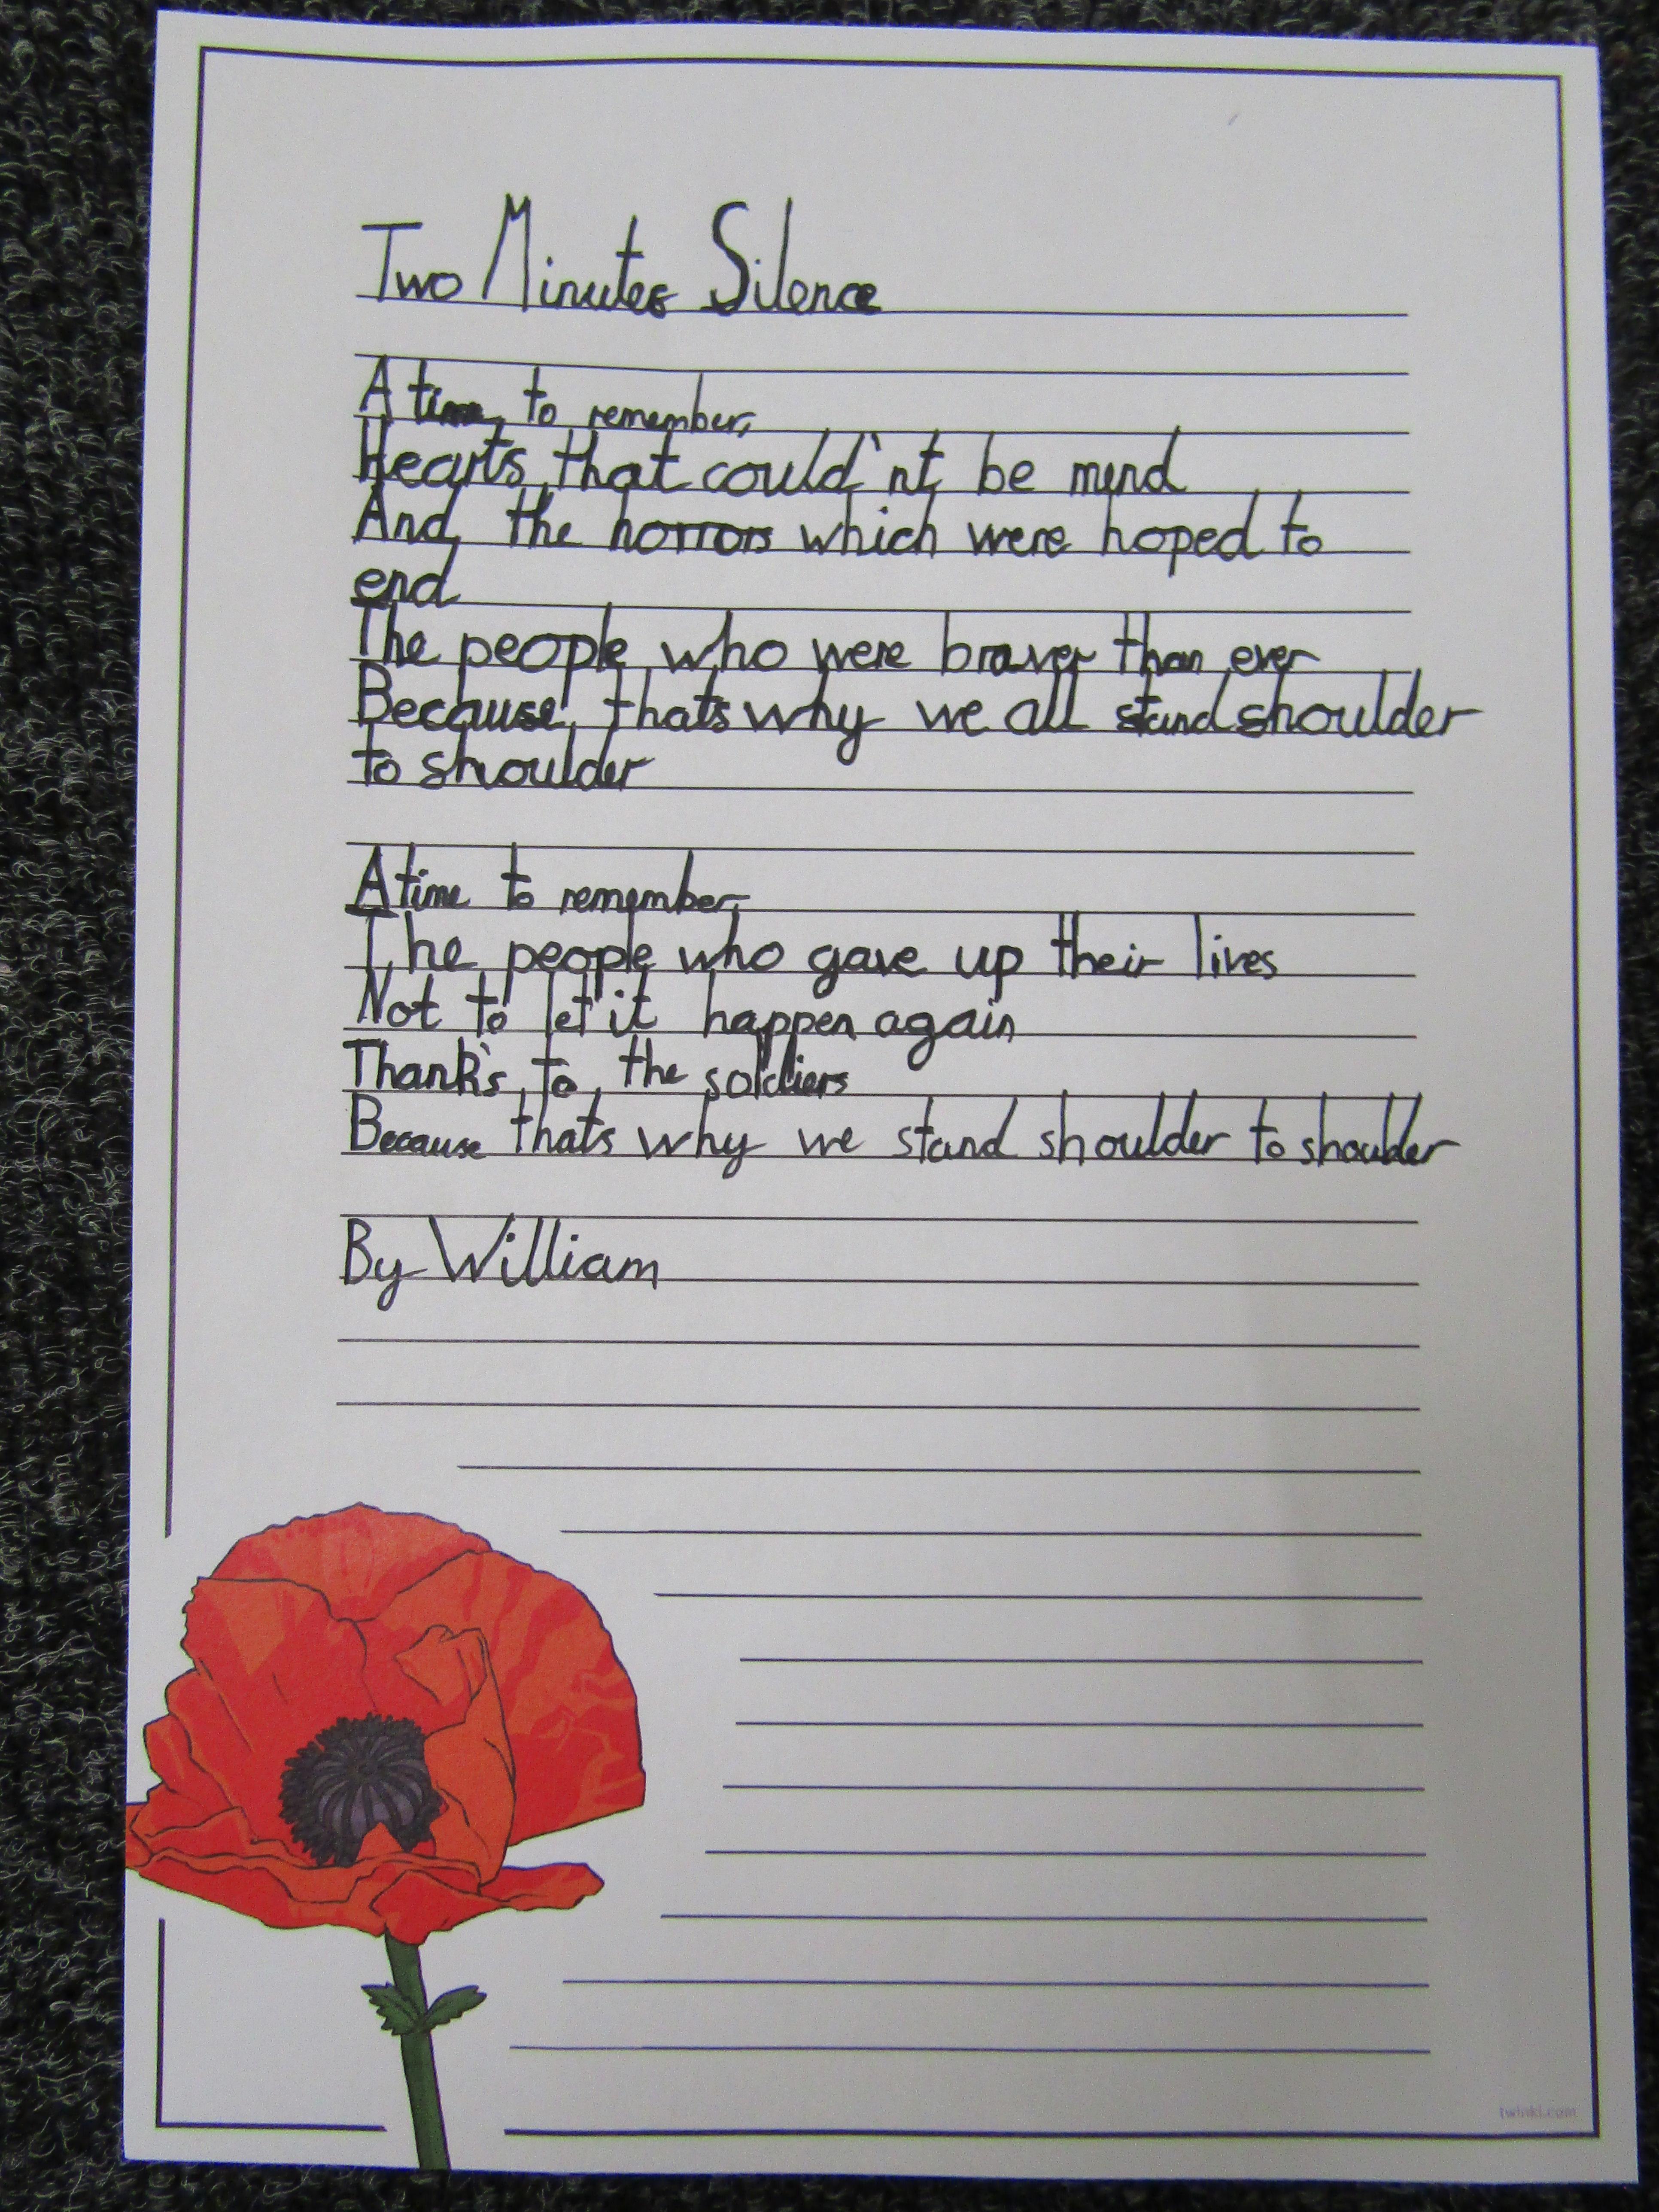 Two Minutes Silence
A time to remember,
Hearts that could'nt be mend
And the horrors which were hoped to
end
The people who were braver than ever
Because thats why we all stand shoulder
to shoulder
A time to remember,
The people who gave up their lives
Not to let it happen again
Thank's to the soldiers
Because thats why we stand shoulder to shoulder
By William
twinkl.com